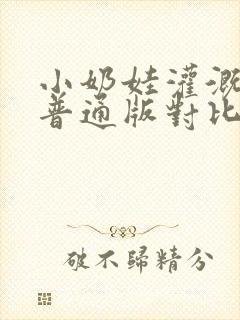 小奶娃灌溉
普通版對比
破不歸精分